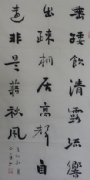 垂緌飲清露流響
出疏桐居高聲自
遠非是藉秋風